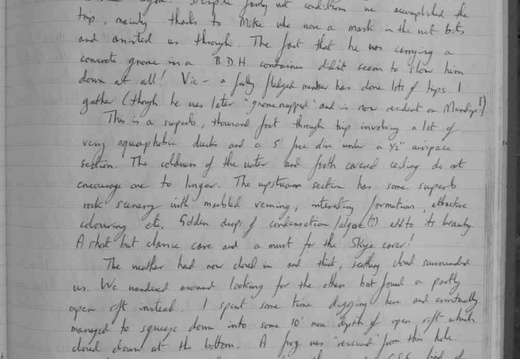 again. Despite fairly wet conditions we accomplished the
trip, mainly thanks to Mike who wore a mask in the wet bits
and assisted us through. The fact that he was carrying a
concrete gnome in a B.D.H container didn't seem to slow him
down at all! Vic - a fully fledged member has done lots of trips I
gather (though he was later "gnomenapped" and is now resident on Mendip!)
This is a superb, thousand foot through trip involving a lot of
very aquaphobic ducks and a 5' free dive under a ½" airspace
section. The coldness of the water and froth covered ceiling do not
encourage one to linger. The upstream section has some superb
rock scenery with marbled veining, interesting formations, attractive
colouring etc. Golden drops of condensation/algae(?) add to its beauty.
A short but classic cave and a must for the Skye caver!
The weather had now closed in and thick, swirling cloud surrounded
us. We wandered around looking for the other but found a partly
open rift instead. I spent some time digging here and eventually
managed to squeeze down into some 10' more depth of open rift which
closed down at the bottom. A frog was "rescued" from this hole